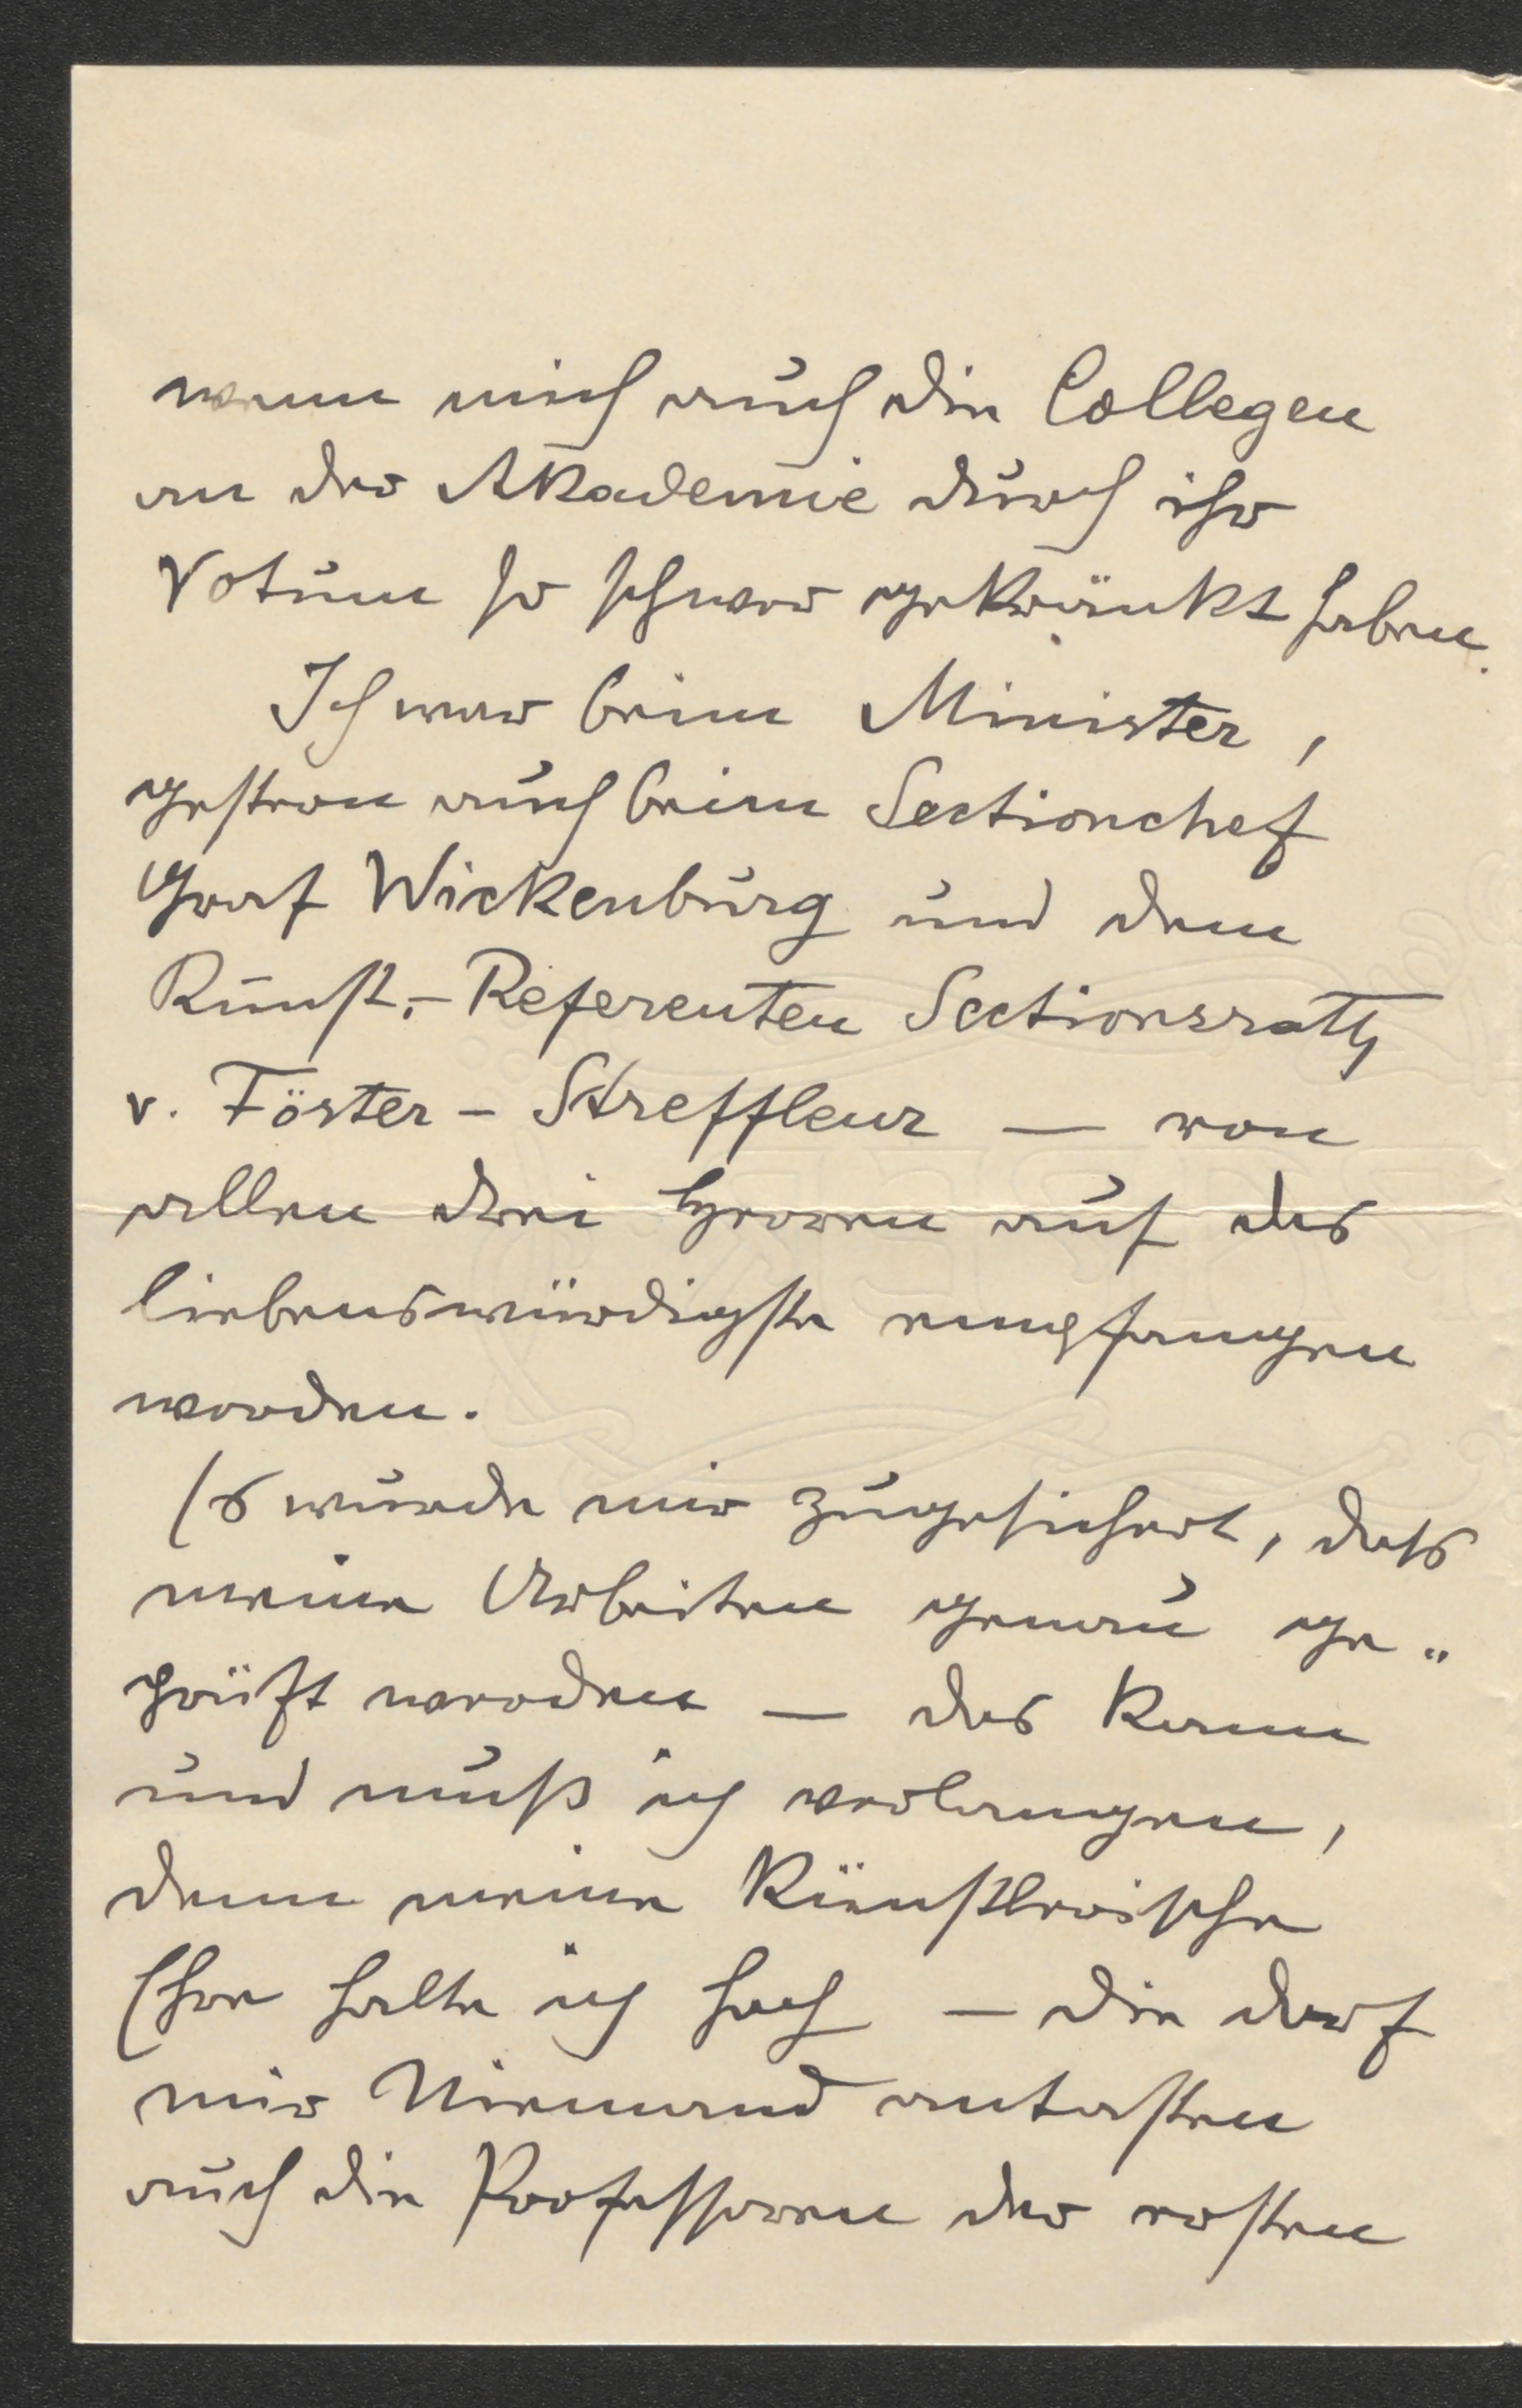 wenn mich auch die Collegen
an der Akademie durch ihr
Votum so schwer gekränkt haben.
Ich war beim Minister,
gestern auch beim Sectionchef
Graf Wickenburg und dem
Kunst.-Referenten Sectionsrath
v. Föster - Streffleur — von
allen drei Herren auf das
liebenswürdigste empfangen
worden.
Es wurde mir zugesichert, dass
meine Arbeiten genau ge„
prüft werden — das kann
und muß ich verlangen,
denn meine Künstlerische
Ehre halte ich hoch — die darf
mir Niemand antasten
auch die Professoren der ersten